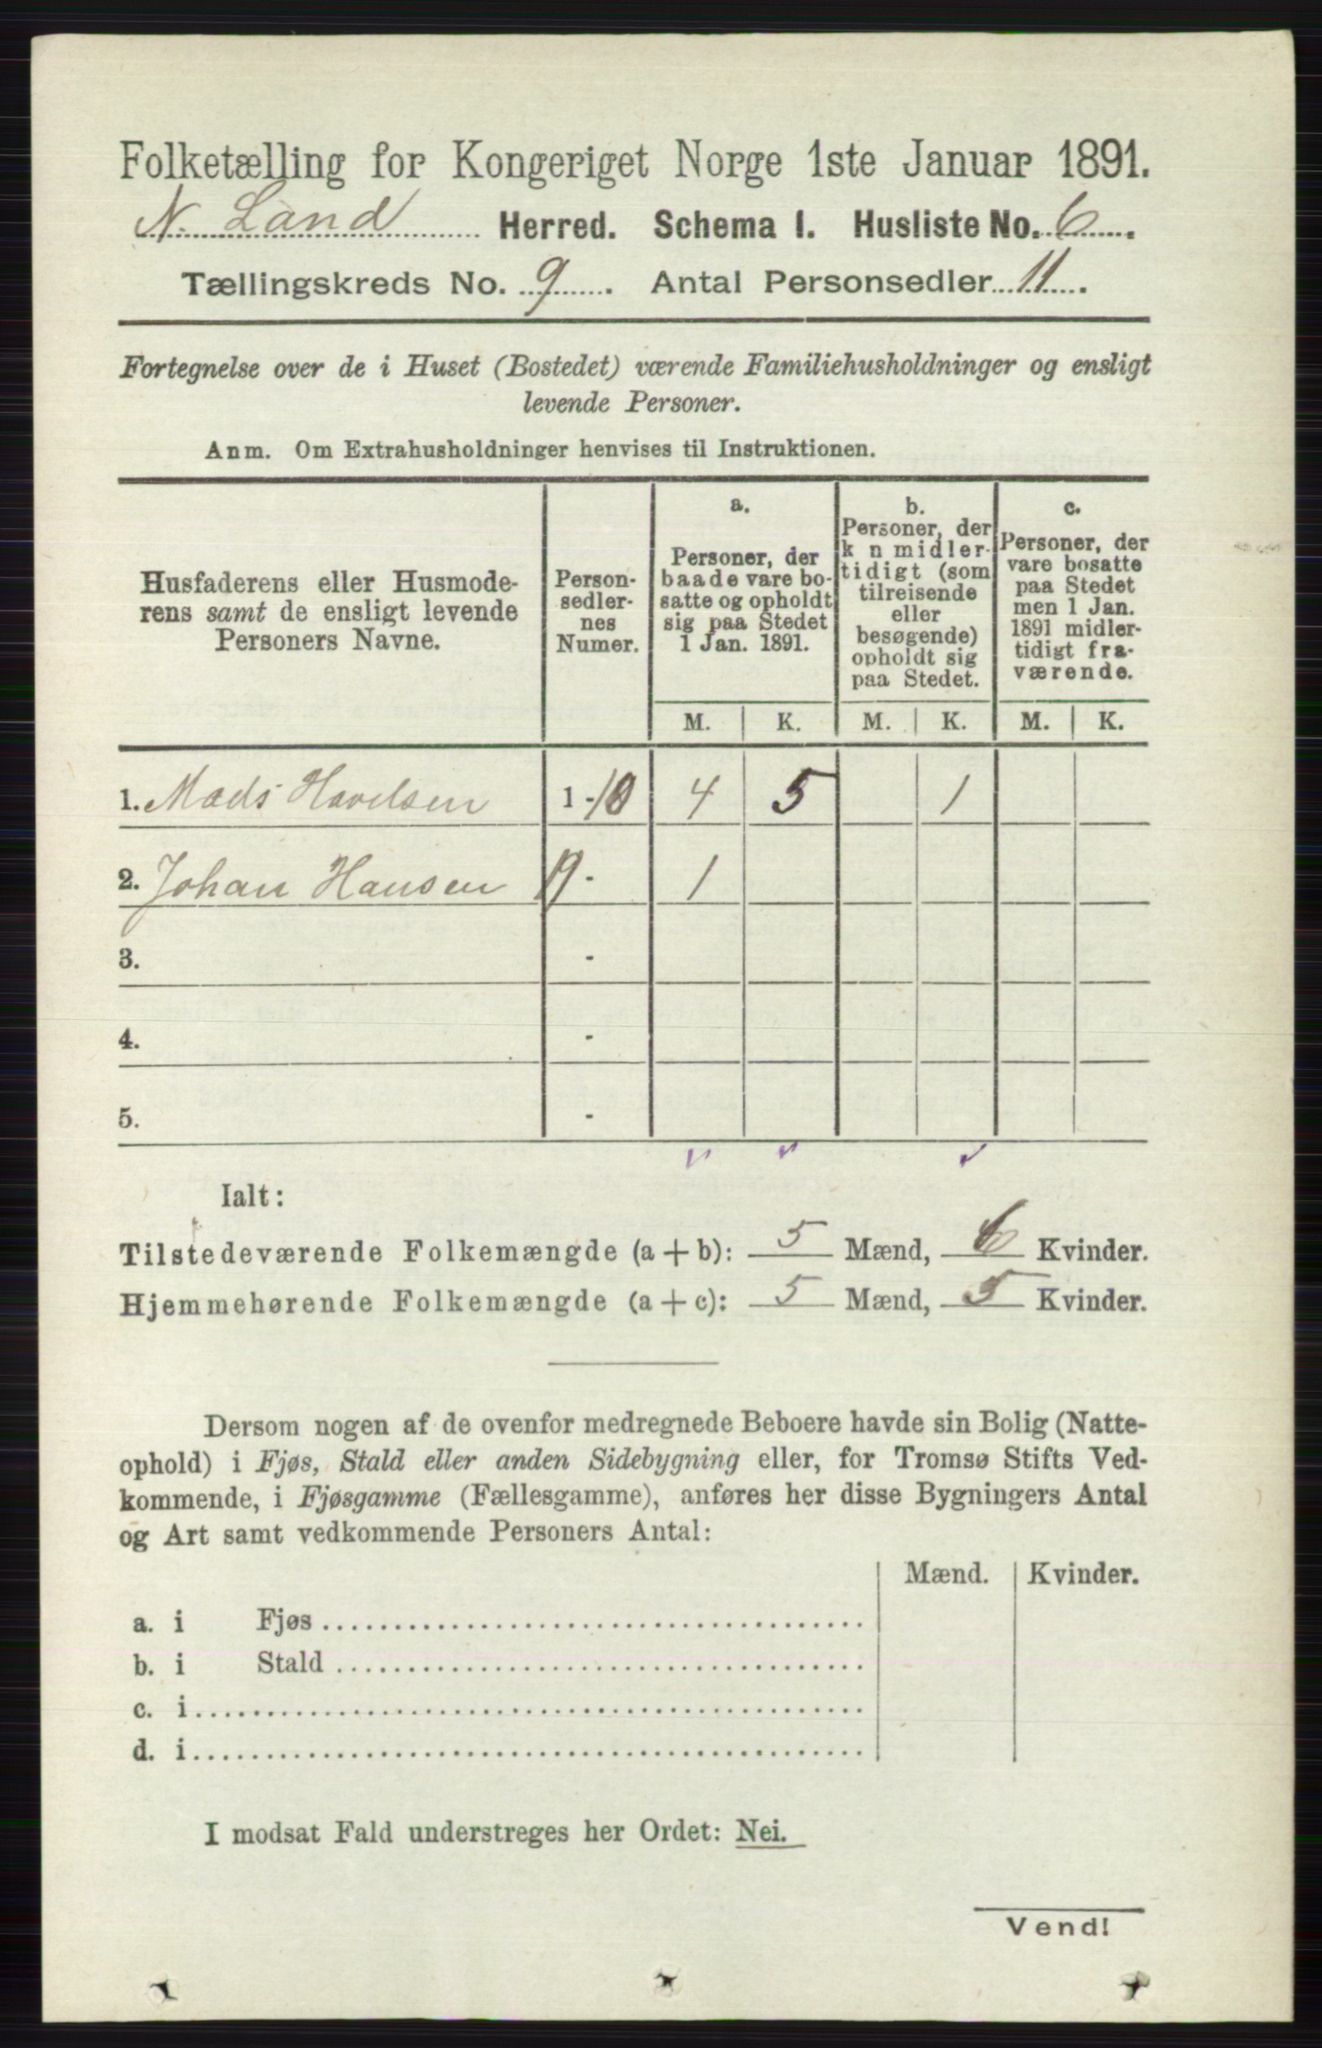 Folketælling for Kongeriget Norge 1ste Januar 1891.
N. Land Herred. Schema I. Husliste No. 6.
Tællingskreds No. 9. Antal Personsedler 11.
Fortegnelse over de i Huset (Bostedet) værende Familiehusholdninger og ensligt
levende Personer.
Anm. Om Extrahusholdninger henvises til Instruktionen.
Husfaderens eller Husmode-
rens samt de ensligt levende
Personers Navne.
Person-
sedler-
nes
Numer.
a.
Personer, der
baade vare bo-
satte og opholdt
sig paa Stedet
1 Jan. 1891.
b.
Personer, der
k n midler-
tidigt (som
tilreisende
eller
besøgende)
opholdt sig
paa Stedet.
c.
Personer, der
vare bosatte
paa Stedet
men 1 Jan.
1891 midler-
tidigt fra-
værende.
M. K. M. K. M. K.
1. Mads Havelsen 1-10 4 5 1
2. Johan Hansen 11- 1
3. -
4. -
5. -
Ialt:
Tilstedeværende Folkemængde (a + b): 5 Mænd, 6 Kvinder.
Hjemmehørende Folkemængde (a + c): 5 Mænd, 5 Kvinder.
Dersom nogen af de ovenfor medregnede Beboere havde sin Bolig (Natte-
ophold) i Fjøs, Stald eller anden Sidebygning eller, for Tromsø Stifts Ved-
kommende, i Fjøsgamme (Fællesgamme), anføres her disse Bygningers Antal
og Art samt vedkommende Personers Antal:
Mænd. Kvinder.
a. i Fjøs
b. i Stald
c. i
d. i
I modsat Fald understreges her Ordet: Nei.
Vend!